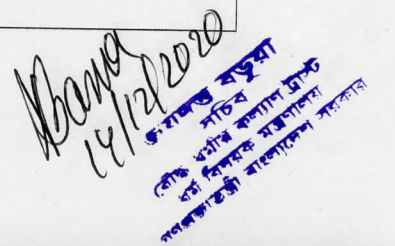 14/12/2020
বড়ুয়া
সচিব
বৌদ্ধ ধর্মীয় কল্যাণ ট্রাস্ট
ধর্ম বিষয়ক মন্ত্রণালয়
গণপ্রজাতন্ত্রী বাংলাদেশ সরকার